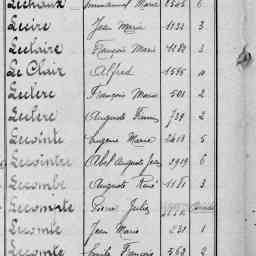 Lechaux Emmanuel Marie 1525 6
Lecire Jean Marie 1132 3
Leclaire François Marie 1182 3
Le Clair Alfred 1555 10
Leclère François Marie 501 2
Leclère Auguste 739 2
Lecointe Eugène Marie 2418 5
Lecointre Abel Auguste 2919 6
Lecombe Auguste René 1181 3
Lecompte Pierre Jules
Lecomte Jean Marie 231 1
Lecomte Emile François 562 2